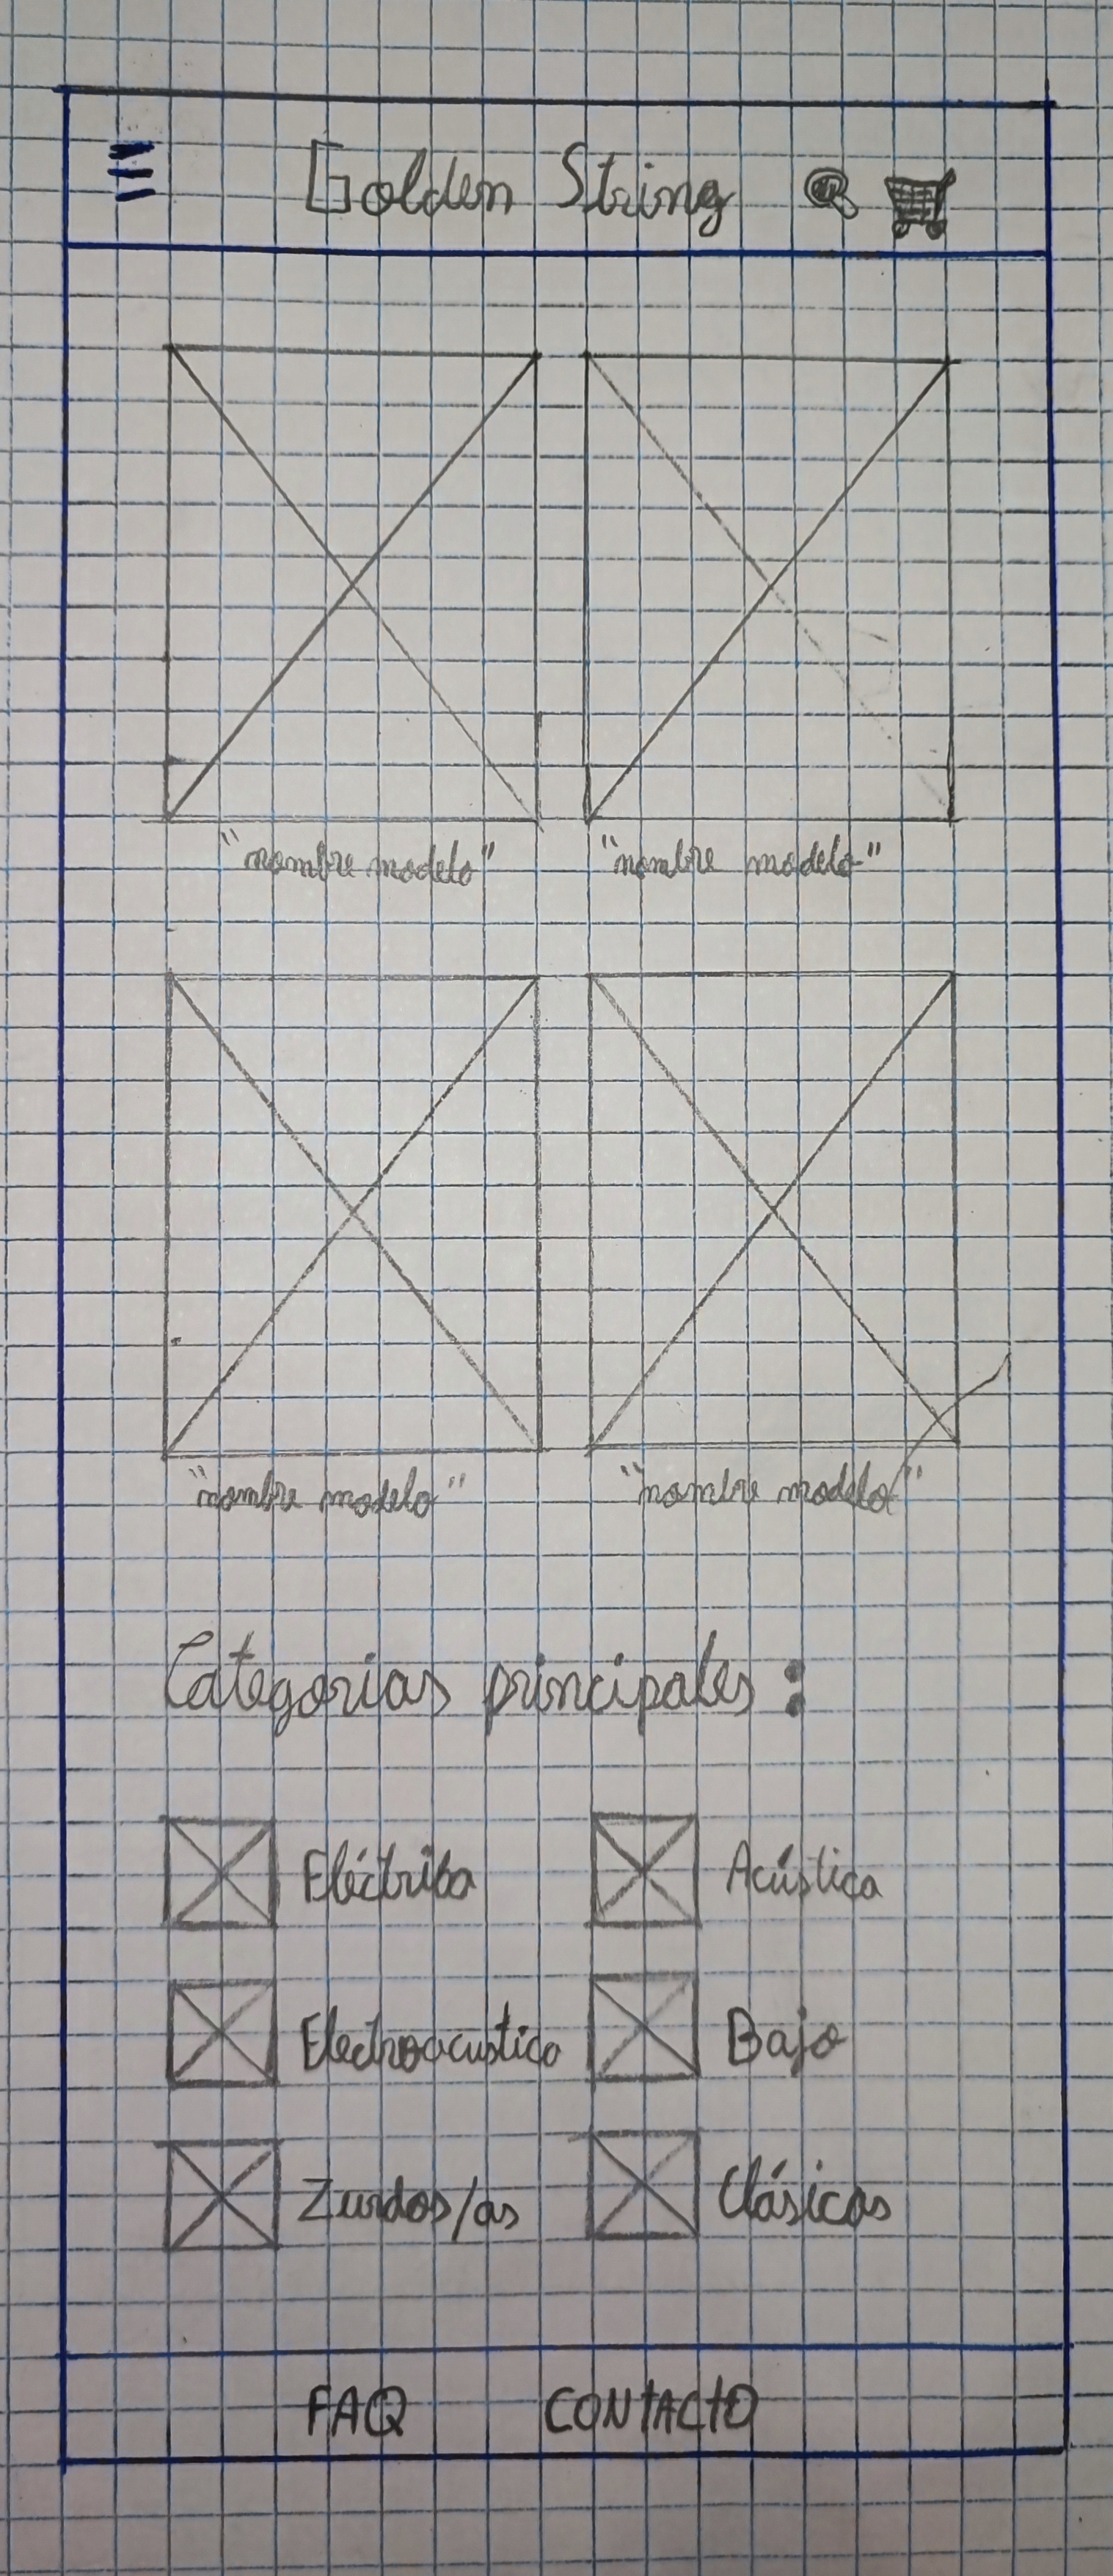 Golden String
"nombre modelo" "nombre modelo"
"nombre modelo" "nombre modelo"
Categorias principales:
Eléctrica Acústica
Electroacustica Bajo
Zurdos/as Clásicas
FAQ CONTACTO